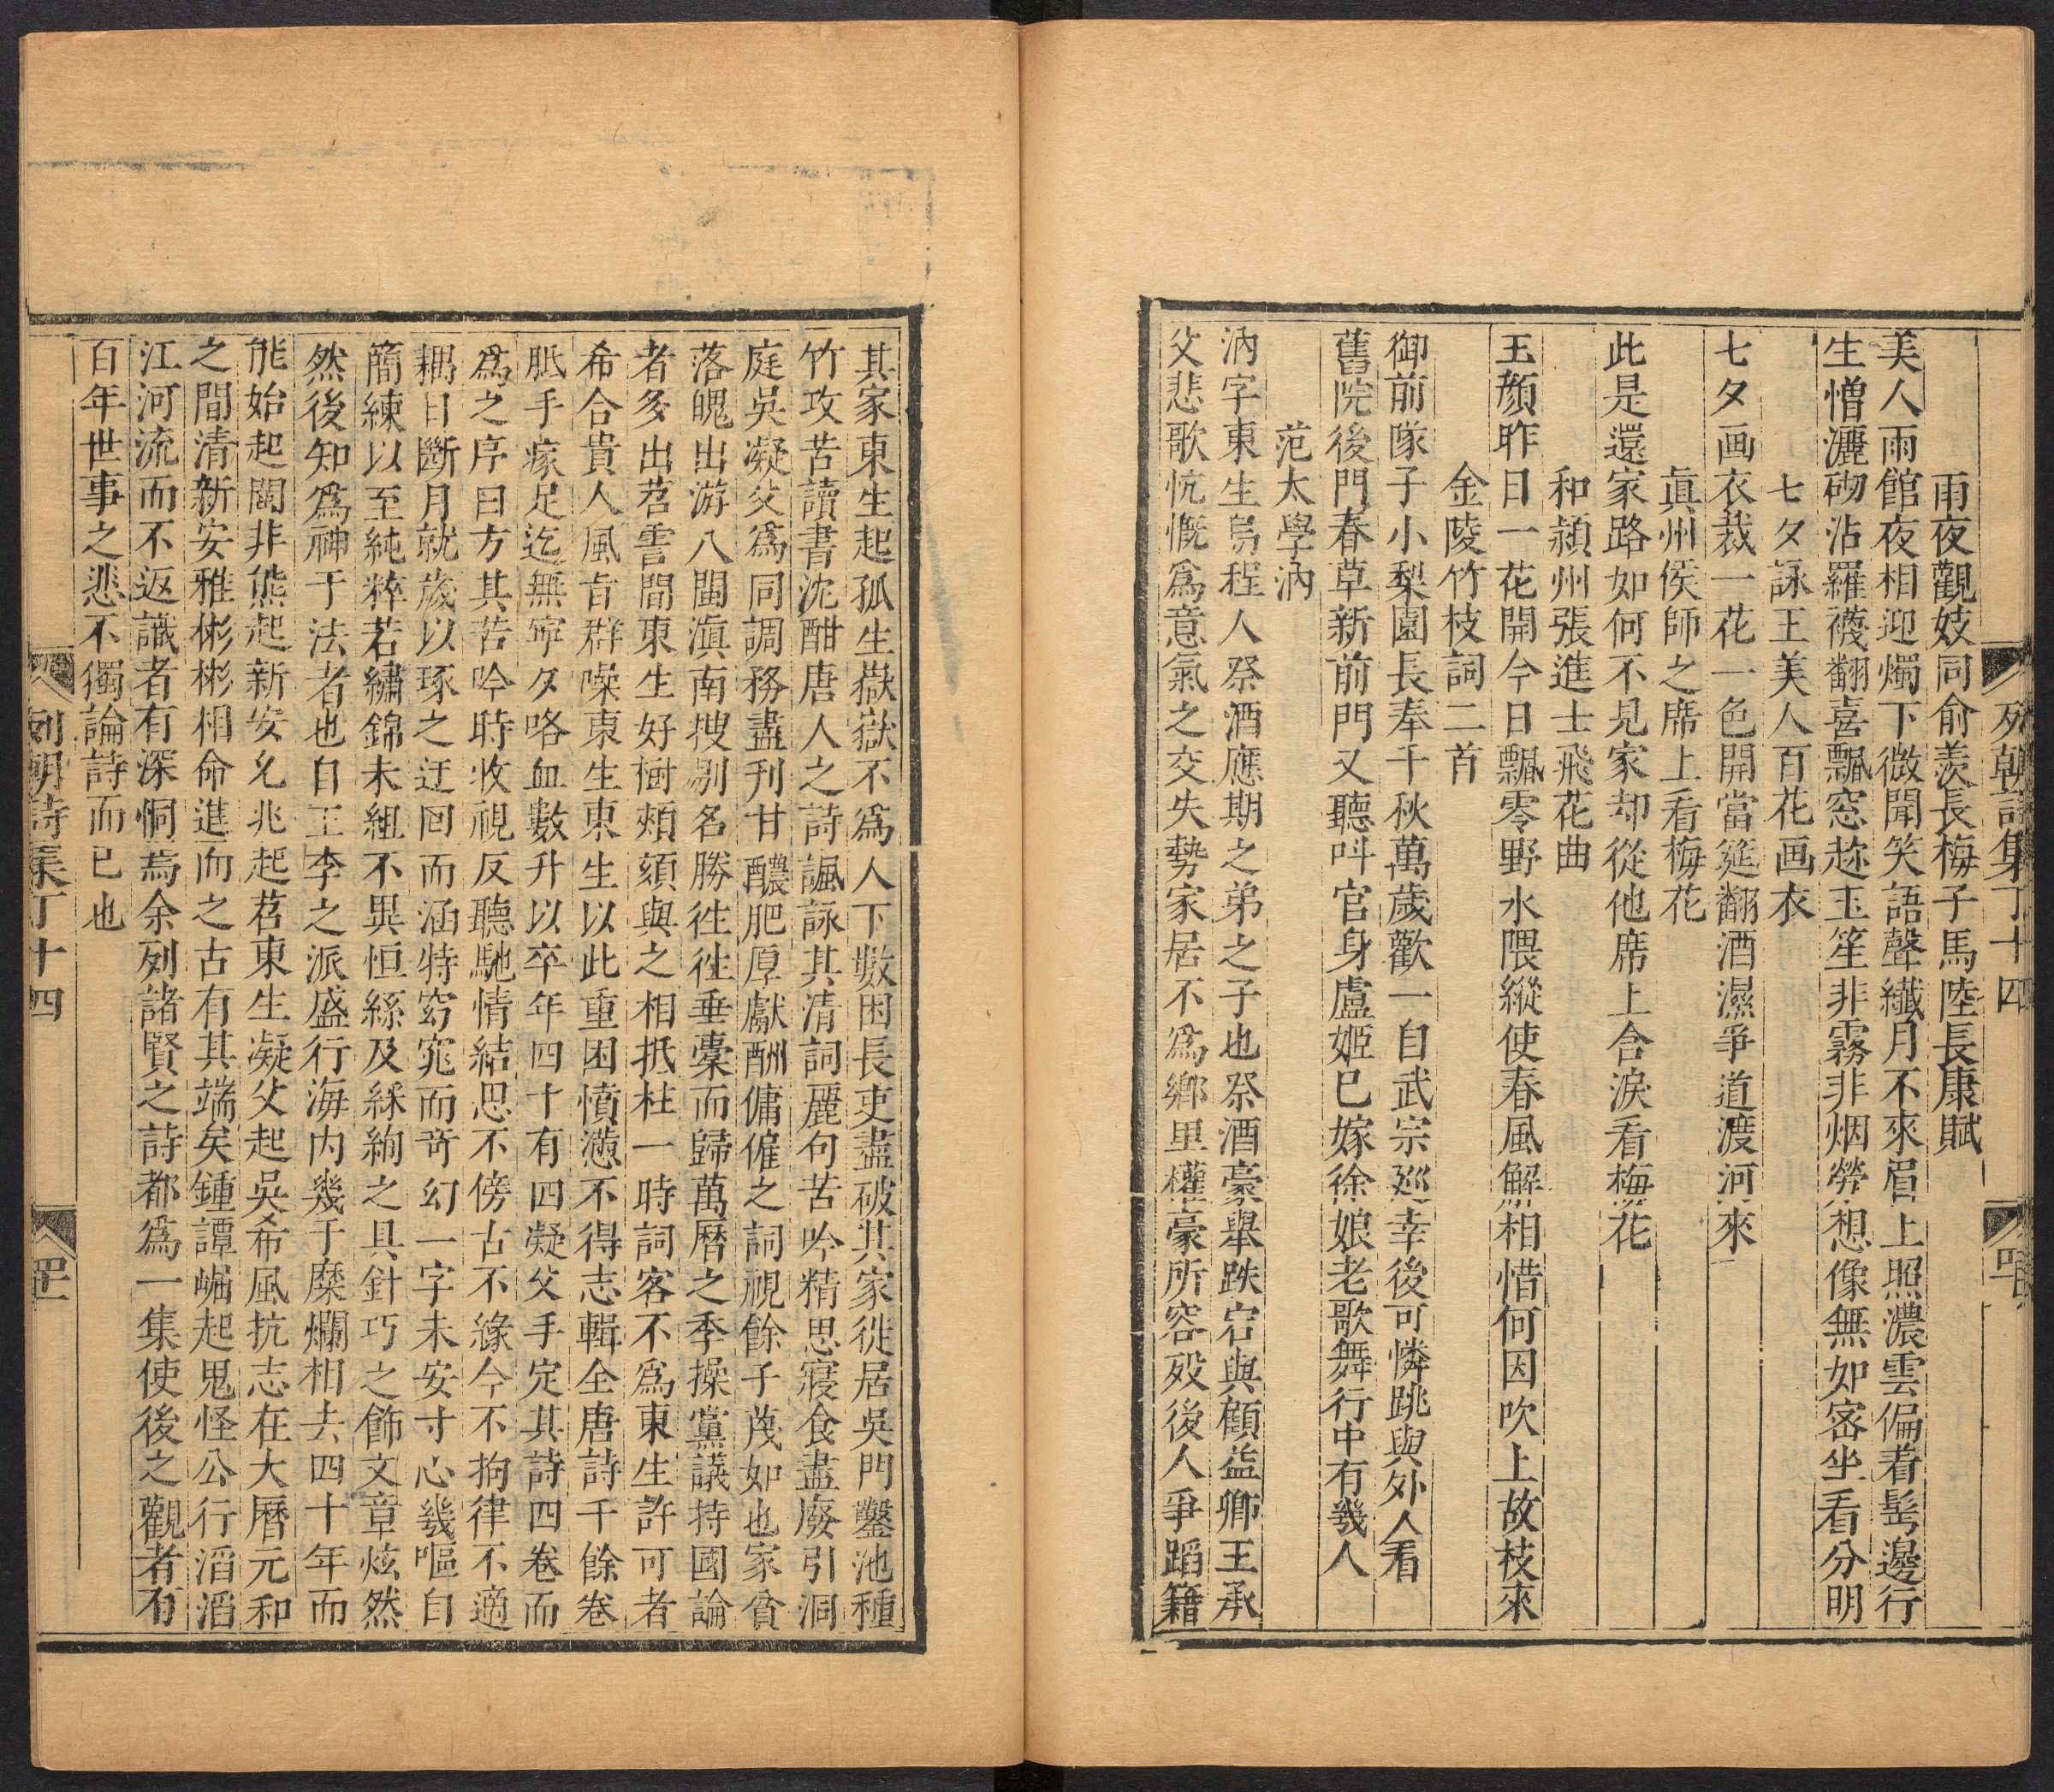 雨夜觀妓同俞羨長梅子馬陸長康賦
美人雨館夜相迎燭下微聞笑語聲纖月不來眉上照濃雲偏着髩邊行
生憎灑砌沾羅襪翻喜飄窓趂玉笙非霧非烟勞想像無如宻坐看分明
七夕詠王美人百花画衣
七夕画衣裁一花一色開當筵翻酒濕爭道渡河來
眞州侯師之席上看梅花
此是還家路如何不見家却從他席上含淚看梅花
和潁州張進士飛花曲
玉顔昨日一花開今日飄零野水隈縱使春風解相惜何因吹上故枝來
金陵竹枝詞二首
御前隊子小梨園長奉千秋萬歲歡一自武宗廵幸後可憐跳與外人看
舊院後門春草新前門又聽呌官身盧姬已嫁徐娘老歌舞行中有幾人
范太學汭
汭字東生烏程人祭酒應期之弟之子也祭酒豪舉跌宕與顧益卿王承
父悲歌忼慨爲意氣之交失勢家居不爲鄉里權豪所容殁後人爭蹈籍
列朝詩集丁十四
其家東生起孤生嶽嶽不爲人下數困長吏盡破其家徙居吳門鑿池種
竹攻苦讀書沈酣唐人之詩諷詠其清詞麗句苦吟精思寢食盡廢引洞
庭吳凝父爲同調務盡刋甘醲肥厚獻酬傭僱之詞視餘子蔑如也家貧
落魄出游八閩滇南搜剔名勝徃徃垂橐而歸萬曆之季操黨議持國論
者多出苕霅間東生好樹頰頦與之相抵柱一時詞客不爲東生許可者
希合貴人風旨群噪東生東生以此重困憤懣不得志輯全唐詩千餘卷
胝手瘃足迄無寧夕咯血數升以卒年四十有四凝父手定其詩四卷而
爲之序曰方其苦吟時收視反聽馳情結思不傍古不緣今不拘律不適
耦日斷月就歲以琢之迂囘而涵特窈窕而奇幻一字未安寸心幾嘔自
簡練以至純粹若繡錦未組不異恒絲及綵絢之具針巧之飾文章炫然
然後知爲神于法者也自王李之派盛行海内幾于糜爛相去四十年而
能始起閩非熊起新安允兆起苕東生凝父起吳希風抗志在大曆元和
之間清新安雅彬彬相命進而之古有其端矣鍾譚崛起鬼怪公行滔滔
江河流而不返識者有深恫焉余列諸賢之詩都爲一集使後之觀者有
百年世事之悲不獨論詩而已也
列朝詩集丁十四